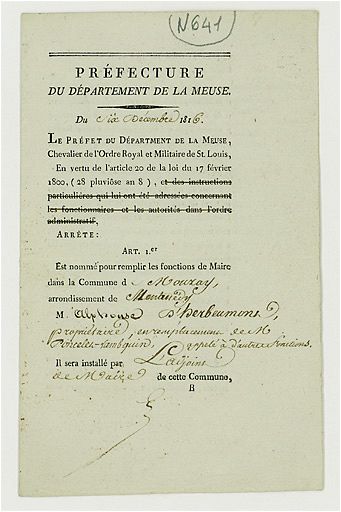 N641
PRÉFECTURE
DU DÉPARTEMENT DE LA MEUSE.
Du Six Décembre 1816.
LE PRÉFET DU DÉPARTEMENT DE LA MEUSE,
Chevalier de l'Ordre Royal et Militaire de St. Louis,
En vertu de l'article 20 de la loi du 17 février
1800, (28 pluviôse an 8), et des instructions
particulières qui lui ont été adressées concernant
les fonctionnaires et les autorités dans l'ordre
administratif,
ARRÊTE:
ART. 1.er
Est nommé pour remplir les fonctions de Maire
dans la Commune d e Mouzay,
arrondissement de Montmédy
M. Alphonse D'herbeumont,
propriétaire, en remplacement de M
appelé à d'autres fonctions.
Il sera installé par L'adjoint
de Maire de cette Commune,
B